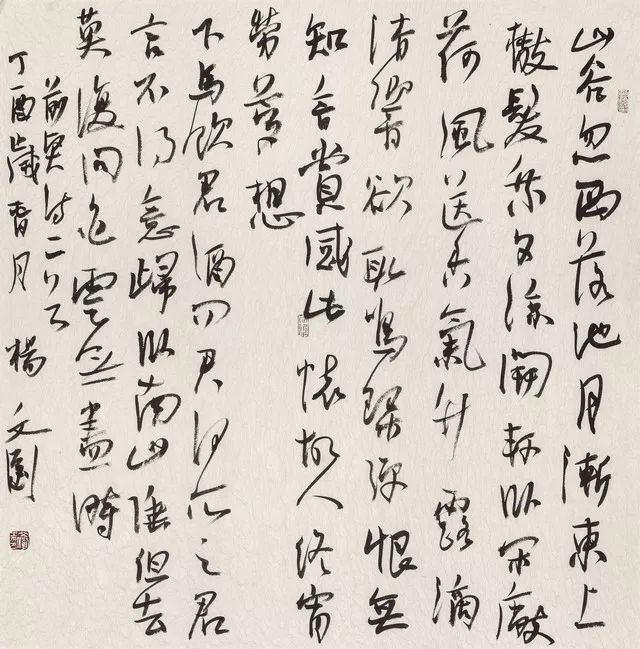 山谷忽西落池月漸東上
散髮乘夕涼開軒臥閑敞
荷風送香氣竹露滴
清響欲取鳴琴彈恨無
知音賞感此懷故人終宵
勞夢想
下馬飲君酒問君何所之君
言不得意歸臥南山陲但去
莫復問白雲無盡時
前賢詩二首
丁酉歲春月 楊文